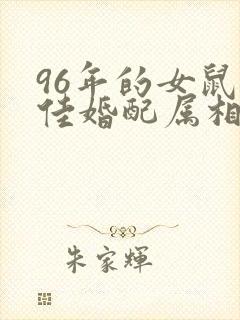 96年的女鼠
佳婚配属相
朱家輝